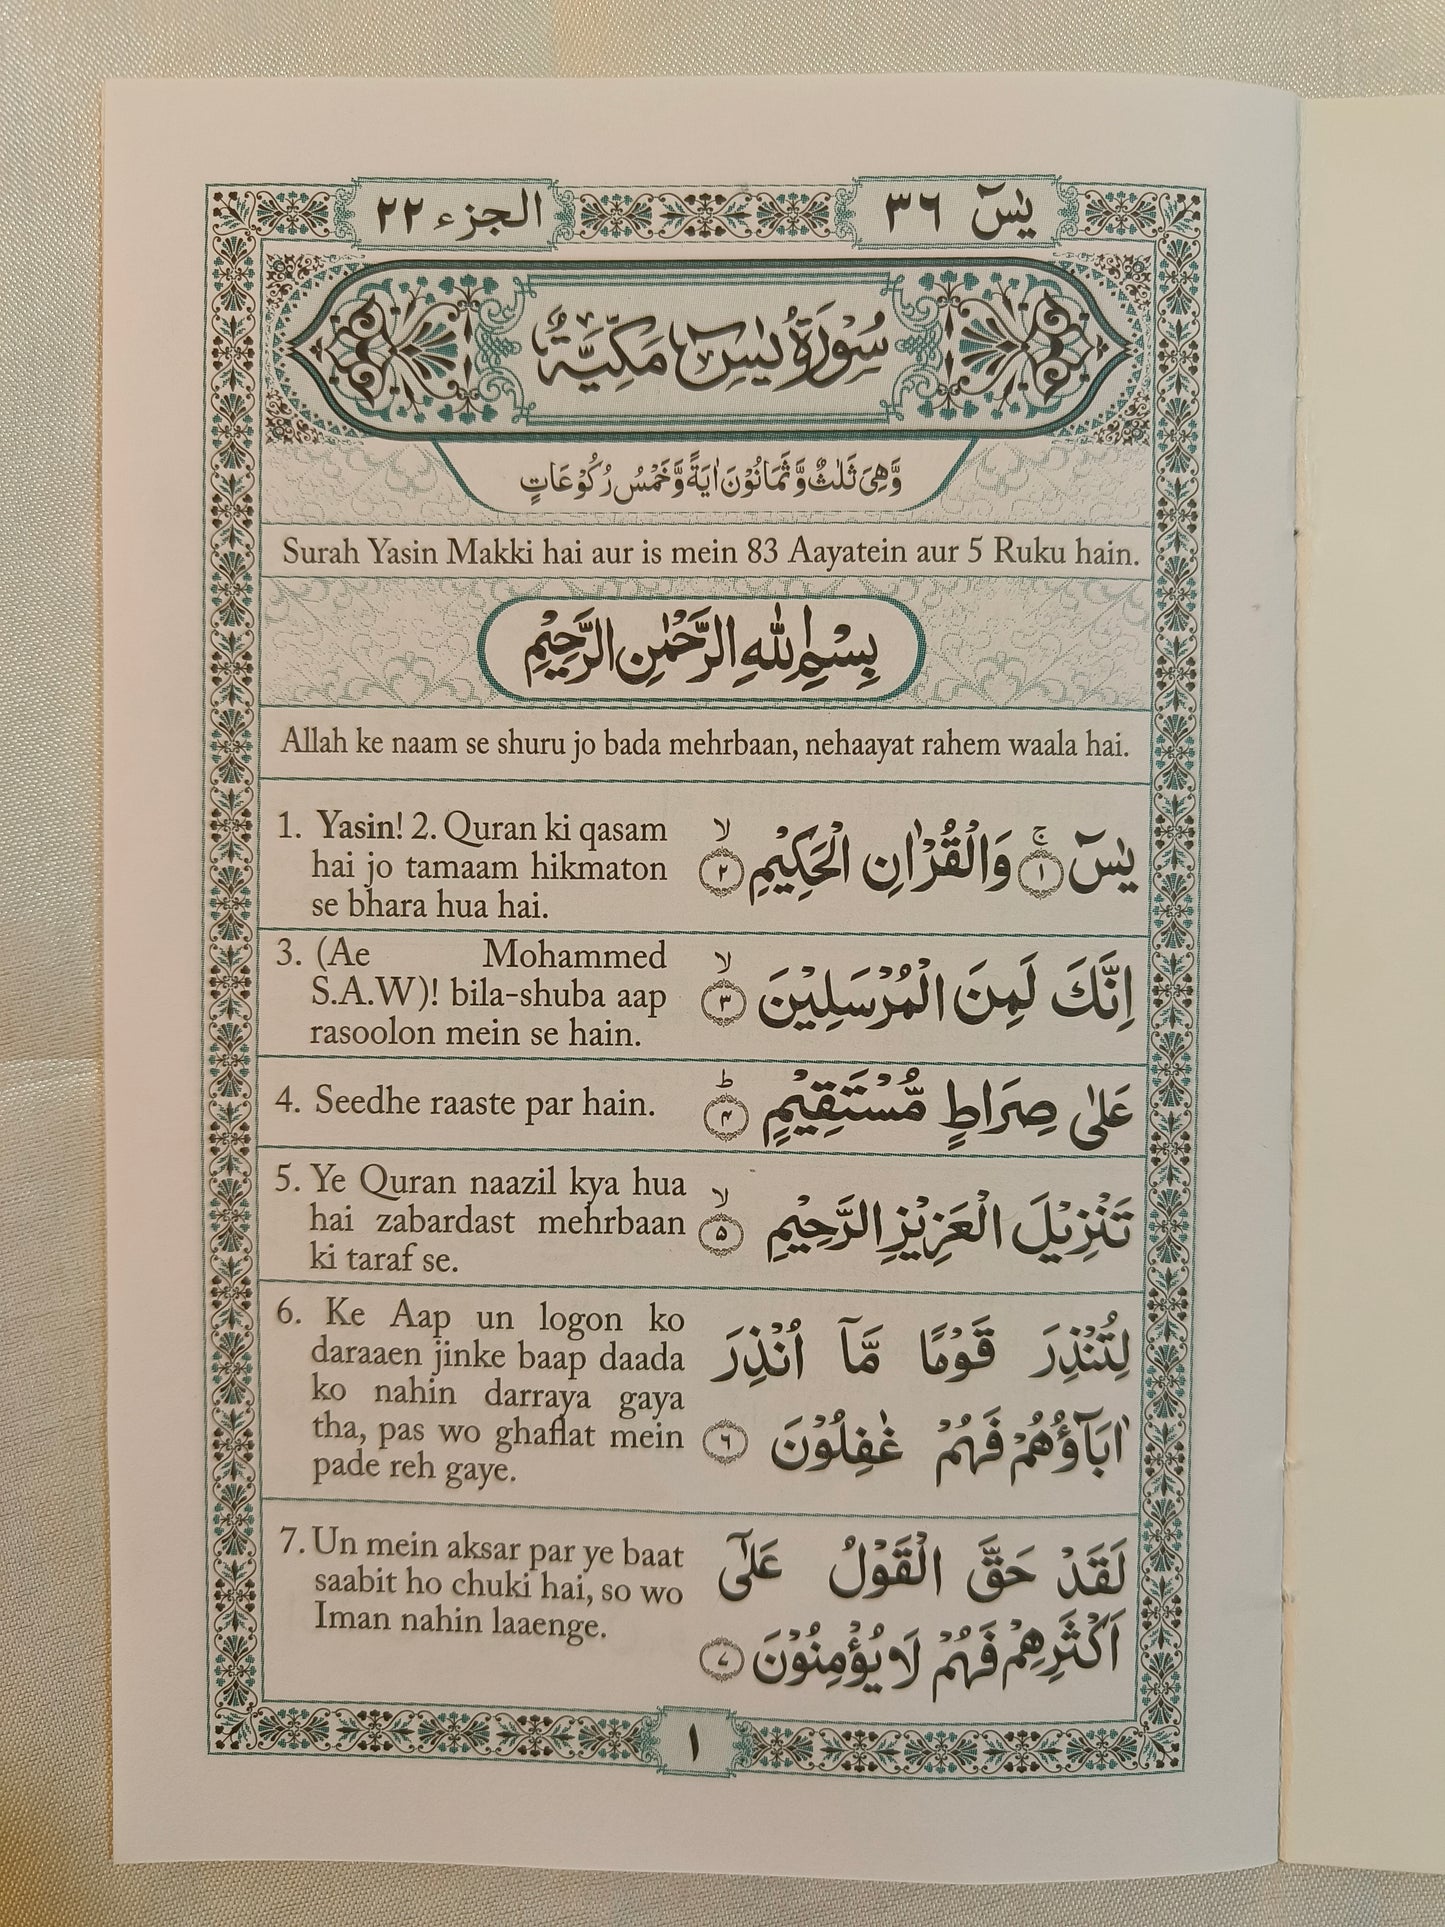 يٰسٓ ٣٦
الجزء ٢٢
سُوْرَةُ يٰسٓ مَكِّيَّةٌ
وَّهِيَ ثَلٰثٌ وَّثَمَانُوْنَ اٰيَةً وَّخَمْسُ رُكُوْعَاتٍ
Surah Yasin Makki hai aur is mein 83 Aayatein aur 5 Ruku hain.
بِسْمِ اللّٰهِ الرَّحْمٰنِ الرَّحِيْمِ
Allah ke naam se shuru jo bada mehrbaan, nehaayat rahem waala hai.
يٰسٓ ۚ ﴿۱﴾ وَالْقُرْاٰنِ الْحَكِيْمِ ۙ ﴿۲﴾
1. Yasin! 2. Quran ki qasam
hai jo tamaam hikmaton
se bhara hua hai.
اِنَّكَ لَمِنَ الْمُرْسَلِيْنَ ۙ ﴿۳﴾
3. (Ae Mohammed
S.A.W)! bila-shuba aap
rasoolon mein se hain.
عَلٰى صِرَاطٍ مُّسْتَقِيْمٍ ؕ ﴿۴﴾
4. Seedhe raaste par hain.
تَنْزِيْلَ الْعَزِيْزِ الرَّحِيْمِ ۙ ﴿۵﴾
5. Ye Quran naazil kya hua
hai zabardast mehrbaan
ki taraf se.
لِتُنْذِرَ قَوْمًا مَّآ اُنْذِرَ
اٰبَآؤُهُمْ فَهُمْ غٰفِلُوْنَ ﴿۶﴾
6. Ke Aap un logon ko
daraaen jinke baap daada
ko nahin darraya gaya
tha, pas wo ghaflat mein
pade reh gaye.
لَقَدْ حَقَّ الْقَوْلُ عَلٰٓى
اَكْثَرِهِمْ فَهُمْ لَا يُؤْمِنُوْنَ ﴿۷﴾
7. Un mein aksar par ye baat
saabit ho chuki hai, so wo
Iman nahin laaenge.
١